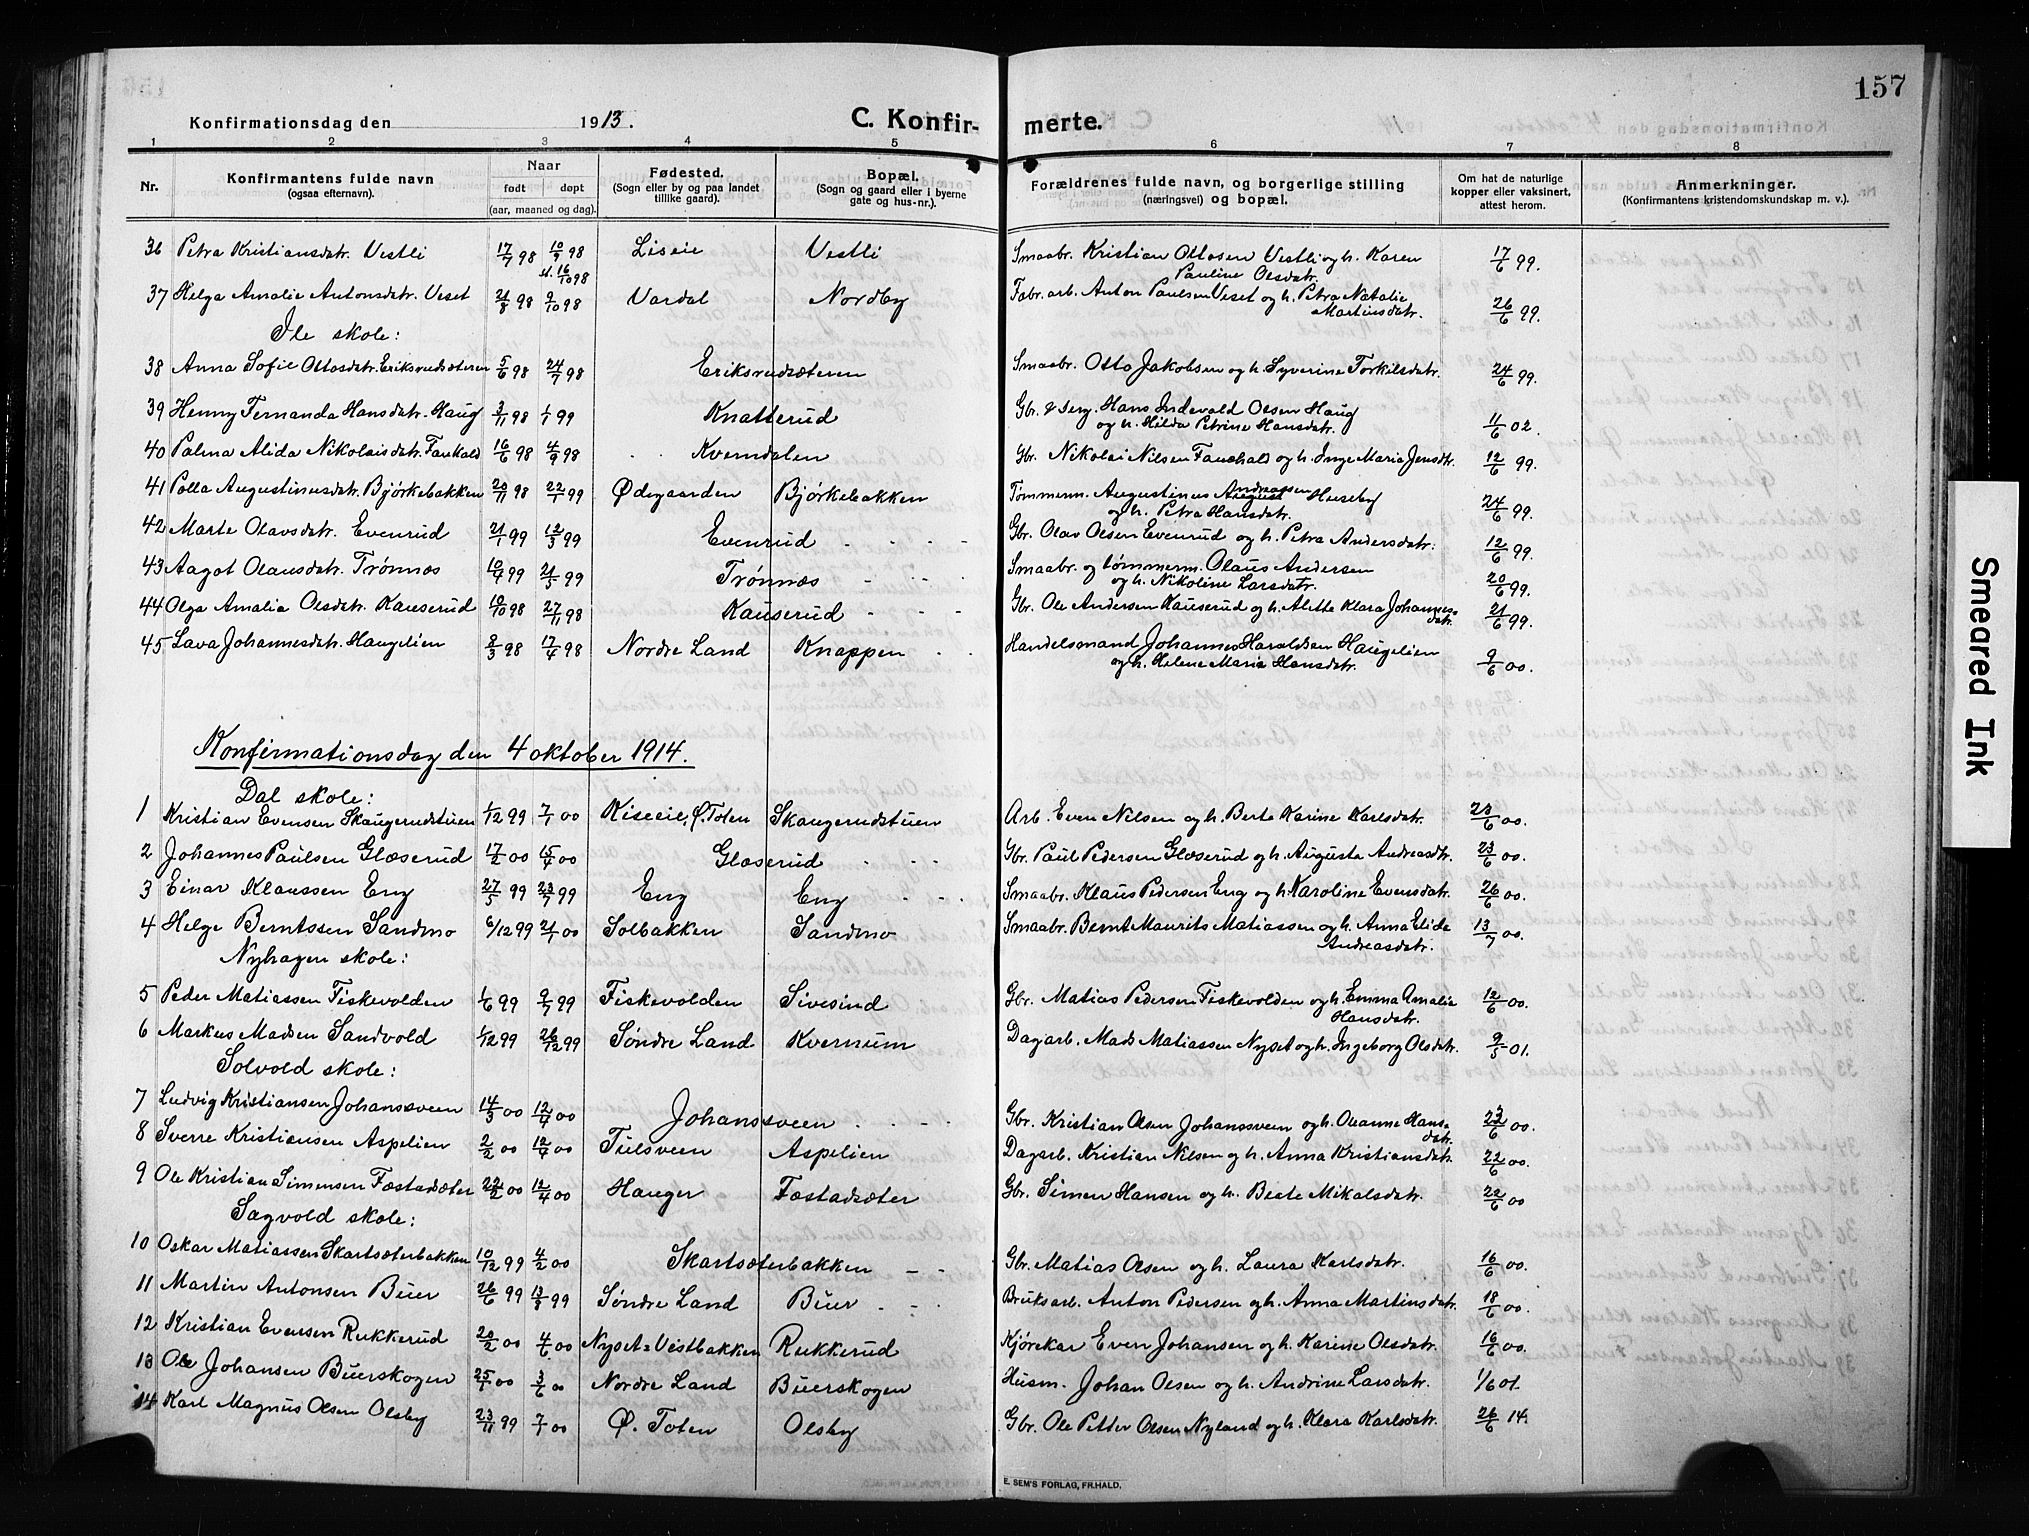 157
Konfirmationsdag den 1913. C. Konfir- merte.
1 2 3 4 5 6 7 8
Nr. Konfirmantens fulde navn (ogsaa efternavn). Naar født døpt (aar, maaned og dag). Fødested. (Sogn eller by og paa landet tillike gaard). Bopæl. (Sogn og gaard eller i byerne gate og hus-nr.). Forældrenes fulde navn, og borgerlige stilling (næringsvei) og bopæl. Om hat de naturlige kopper eller vaksinert, attest herom. Anmerkninger. (Konfirmantens kristendomskundskap m. v.).
36 Petra Kristiansdatr. Vestli 17/7 98 10/9 98 Liseie Vestli Smaabr. Kristian Ottosen Vestli og h. Karen Pauline Olsdatr. 17/6 99.
st. 16/10 98
37 Helga Amalie Antonsdatr. Veset 21/8 98 9/10 98 Vardal Nordby Fabr. arb. Anton Paulsen Veset og h. Petra Natalie Martinsdatr. 26/6 99.
Ile skole:
38 Anna Sofie Ottosdatr. Eriksrudsæteren 5/6 98 24/7 98 Eriksrudsæteren Smaabr. Otto Jakobsen og h. Syverine Torkilsdatr. 24/6 99.
39 Henny Fernanda Hansdatr. Haug 3/11 98 1/1 99 Knatterud Gbr. & serg. Hans Indevald Olsen Haug og h. Hilda Petrine Hansdatr. 11/6 02.
40 Palma Alida Nikolaisdatr. Faukald 16/6 98 4/9 98 Kverndalen Gbr. Nikolai Nilsen Fauchald og h. Inge Maria Jensdtr. 12/6 99.
41 Polla Augustinusdatr. Bjørkebakken 20/11 98 22/1 99 Ødegaarden Bjørkebakken Tømmerm. Augustinus Andreassen Huseby og h. Petra Hansdatr. 24/6 99.
42 Marte Olavsdatr. Evenrud 21/1 99 12/3 99 Evenrud Gbr. Olav Olsen Evenrud og h. Petra Andersdatr. 12/6 99.
43 Aagot Olausdatr. Trønnæs 10/4 99 21/5 99 Trønnæs Smaabr. og tømmerm. Olaus Andersen og h. Nikoline Larsdatr. 20/6 99.
44 Olga Amalia Olsdatr. Kauserud 10/10 98 27/11 98 Kauserud Gbr. Ole Andersen Kauserud og h. Alette Klara Johannesdatr. 21/6 99.
45 Lava Johannesdatr. Haugelien 8/3 98 17/4 98 Nordre Land Knappen Handelsmand Johannes Haraldsen Haugelien og h. Helene Maria Hansdatr. 9/6 00.
Konfirmationsdag den 4 oktober 1914.
Dal skole:
1 Kristian Evensen Skaugerudstuen 1/12 99 7/1 00 Kiseeie, Ø. Toten Skaugerudstuen Arb. Even Nilsen og h. Berte Karine Karlsdatr. 23/6 00.
2 Johannes Paulsen Glæserud 17/2 00 15/4 00 Glæserud Gbr. Paul Pedersen Glæserud og h. Augusta Andreasdtr. 23/6 00.
3 Einar Klaussen Eng 27/5 99 23/7 99 Eng Eng Smaabr. Klaus Pedersen Eng og h. Karoline Evensdatr. 26/6 00.
4 Helge Berntssen Sandmo 6/12 99 21/1 00 Solbakken Sandmo Smaabr. Bernt Maurits Matiassen og h. Anna Elida Andreasdatr. 13/7 00.
Nyhagen skole:
5 Peder Matiassen Fiskevolden 1/6 99 9/7 99 Fiskevolden Sivesind Gbr. Matias Pedersen Fiskevolden og h. Emma Amalie Hansdatr. 12/6 00.
6 Markus Madsen Sandvold 1/12 99 26/12 99 Søndre Land Kvernum Dagarb. Mads Matiassen Nyset og h. Ingeborg Olsdatr. 9/5 01.
Solvold skole:
7 Ludvig Kristiansen Johanssveen 14/3 00 12/4 00 Johanssveen Gbr. Kristian Olsen Johanssveen og h. Oleanne Hansdatr. 23/6 00.
8 Sverre Kristiansen Aspelien 2/2 00 12/4 00 Tulsveen Aspelien Dagarb. Kristian Nilsen og h. Anna Kristiansdatr. 22/6 00.
9 Ole Kristian Simensen Fæstadsæter 22/2 00 12/4 00 Hauger Fæstadsæter Gbr. Simen Hansen og h. Berte Mikalsdatr. 22/6 00
Sagvold skole:
10 Oskar Matiassen Skartsæterbakken 10/12 99 4/2 00 Skartsæterbakken Gbr. Matias Olsen og h. Laura Karlsdatr. 16/6 00.
11 Martin Antonsen Buer 26/6 99 13/8 99 Søndre Land Buer Bruksarb. Anton Pedersen og h. Anna Martinsdatr. 18/6 00.
12 Kristian Evensen Rukkerud 20/2 00 4/6 00 Nyset=Vestbakken Rukkerud Kjørekar Even Johansen og h. Karine Olsdatr. 16/6 00.
13 Ole Johansen Buerskogen 25/1 00 3/6 00 Nordre Land Buerskogen Husm. Johan Olsen og h. Andrine Larsdatr. 1/6 01.
14 Karl Magnus Olsen Olsby 23/11 99 7/1 00 Ø. Toten Olsby Gbr. Ole Petter Olsen Nyland og h. Klara Karlsdatr. 26/6 14.
E. SEM'S FORLAG, FR.HALD.
Smeared Ink